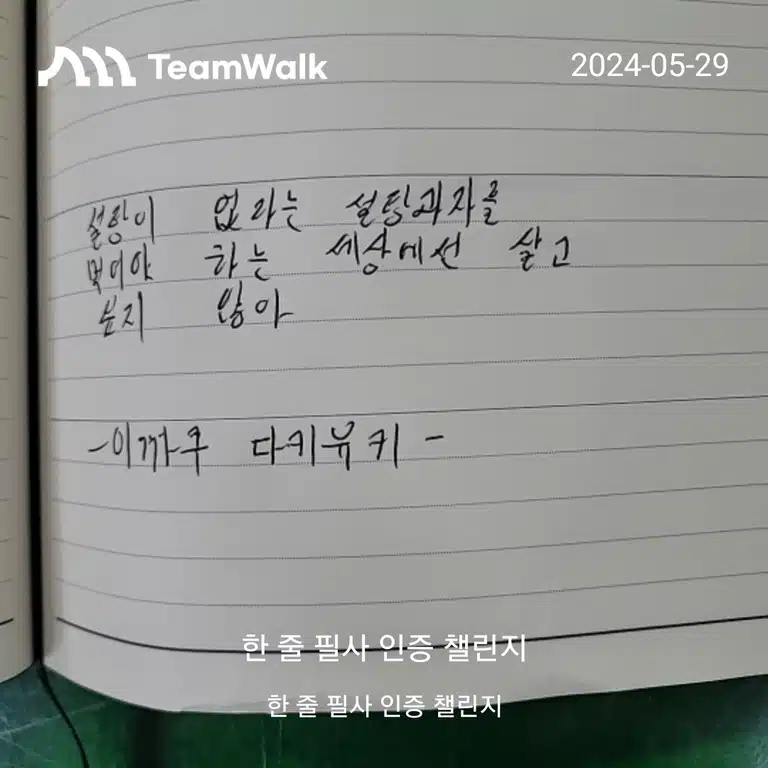 TeamWalk
2024-05-29
설탕이 없라는 설탕과자를
먹어야 하는 세상에선 살고
싶지 않아
-이까쿠 다키뮤키-
한 줄 필사 인증 챌린지
한 줄 필사 인증 챌린지